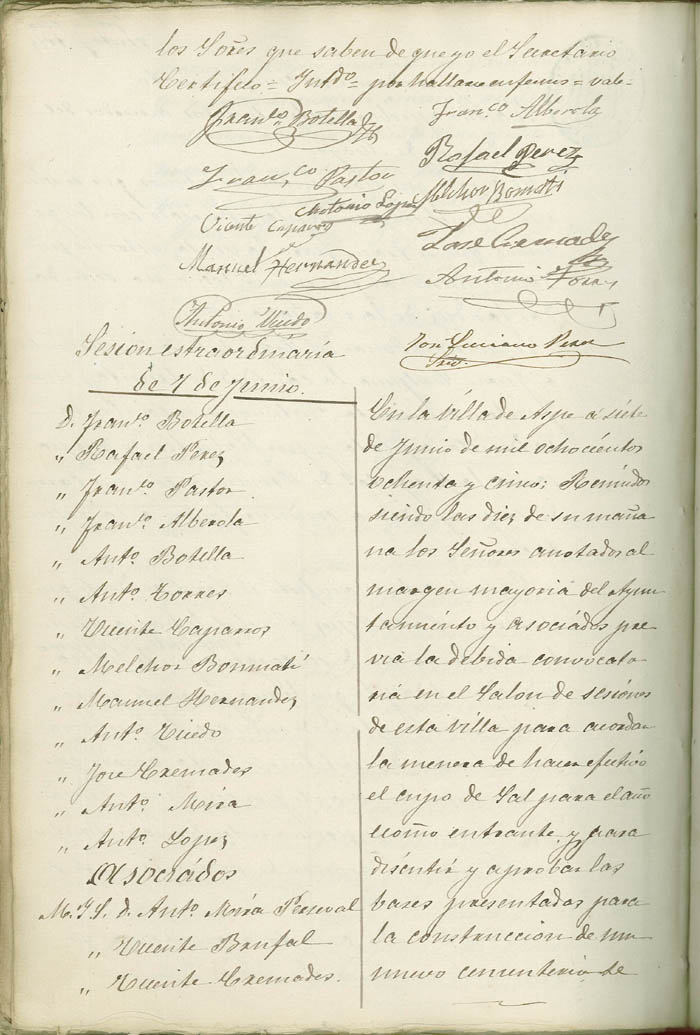 los Sores que saben de que yo el Secretario
Certifico = Intdo = por hallarse enfermo = vale =
Franco Botella
Franco Alberola
Rafael Perez
Franco Pastor
Antonio Lopez
Melchor Bomati
Vicente Caparros
Jose Cremades
Manuel Hernandez
Antonio Torres
Antonio Uñedo
Jose Luciano Perez
Srio.
Sesion estraordinaria
de 7 de Junio.
D. Franco Botella
" Rafael Perez
" Franco Pastor
" Franco Alberola
" Anto Botella
" Anto Torres
" Vicente Caparros
" Melchor Bonmatí
" Manuel Hernandez
" Anto
" Jose Cremades
" Anto Mira
" Anto Lopez
Asociádos
M. I. S. D. Anto Mira Perceval
" Vicente Brufal
" Vicente Cremades.
En la Villa de Aspe a siéte
de Junio de mil ochociéntos
ochenta y cinco: Reunidos
siendo las diez de su maña-
na los Señores anotados al
margen mayoriá del Ayun
tamiénto y asociádos pre
via la debida convocato
riá en el Salon de sesiónes
de esta villa para acordar
la menera de hacer efectivo
el cupo de Sal para el año
ecomo entrante y para
discutir y aprobar las
bases presentadas para
la construccion de un
nuevo cementerio, de